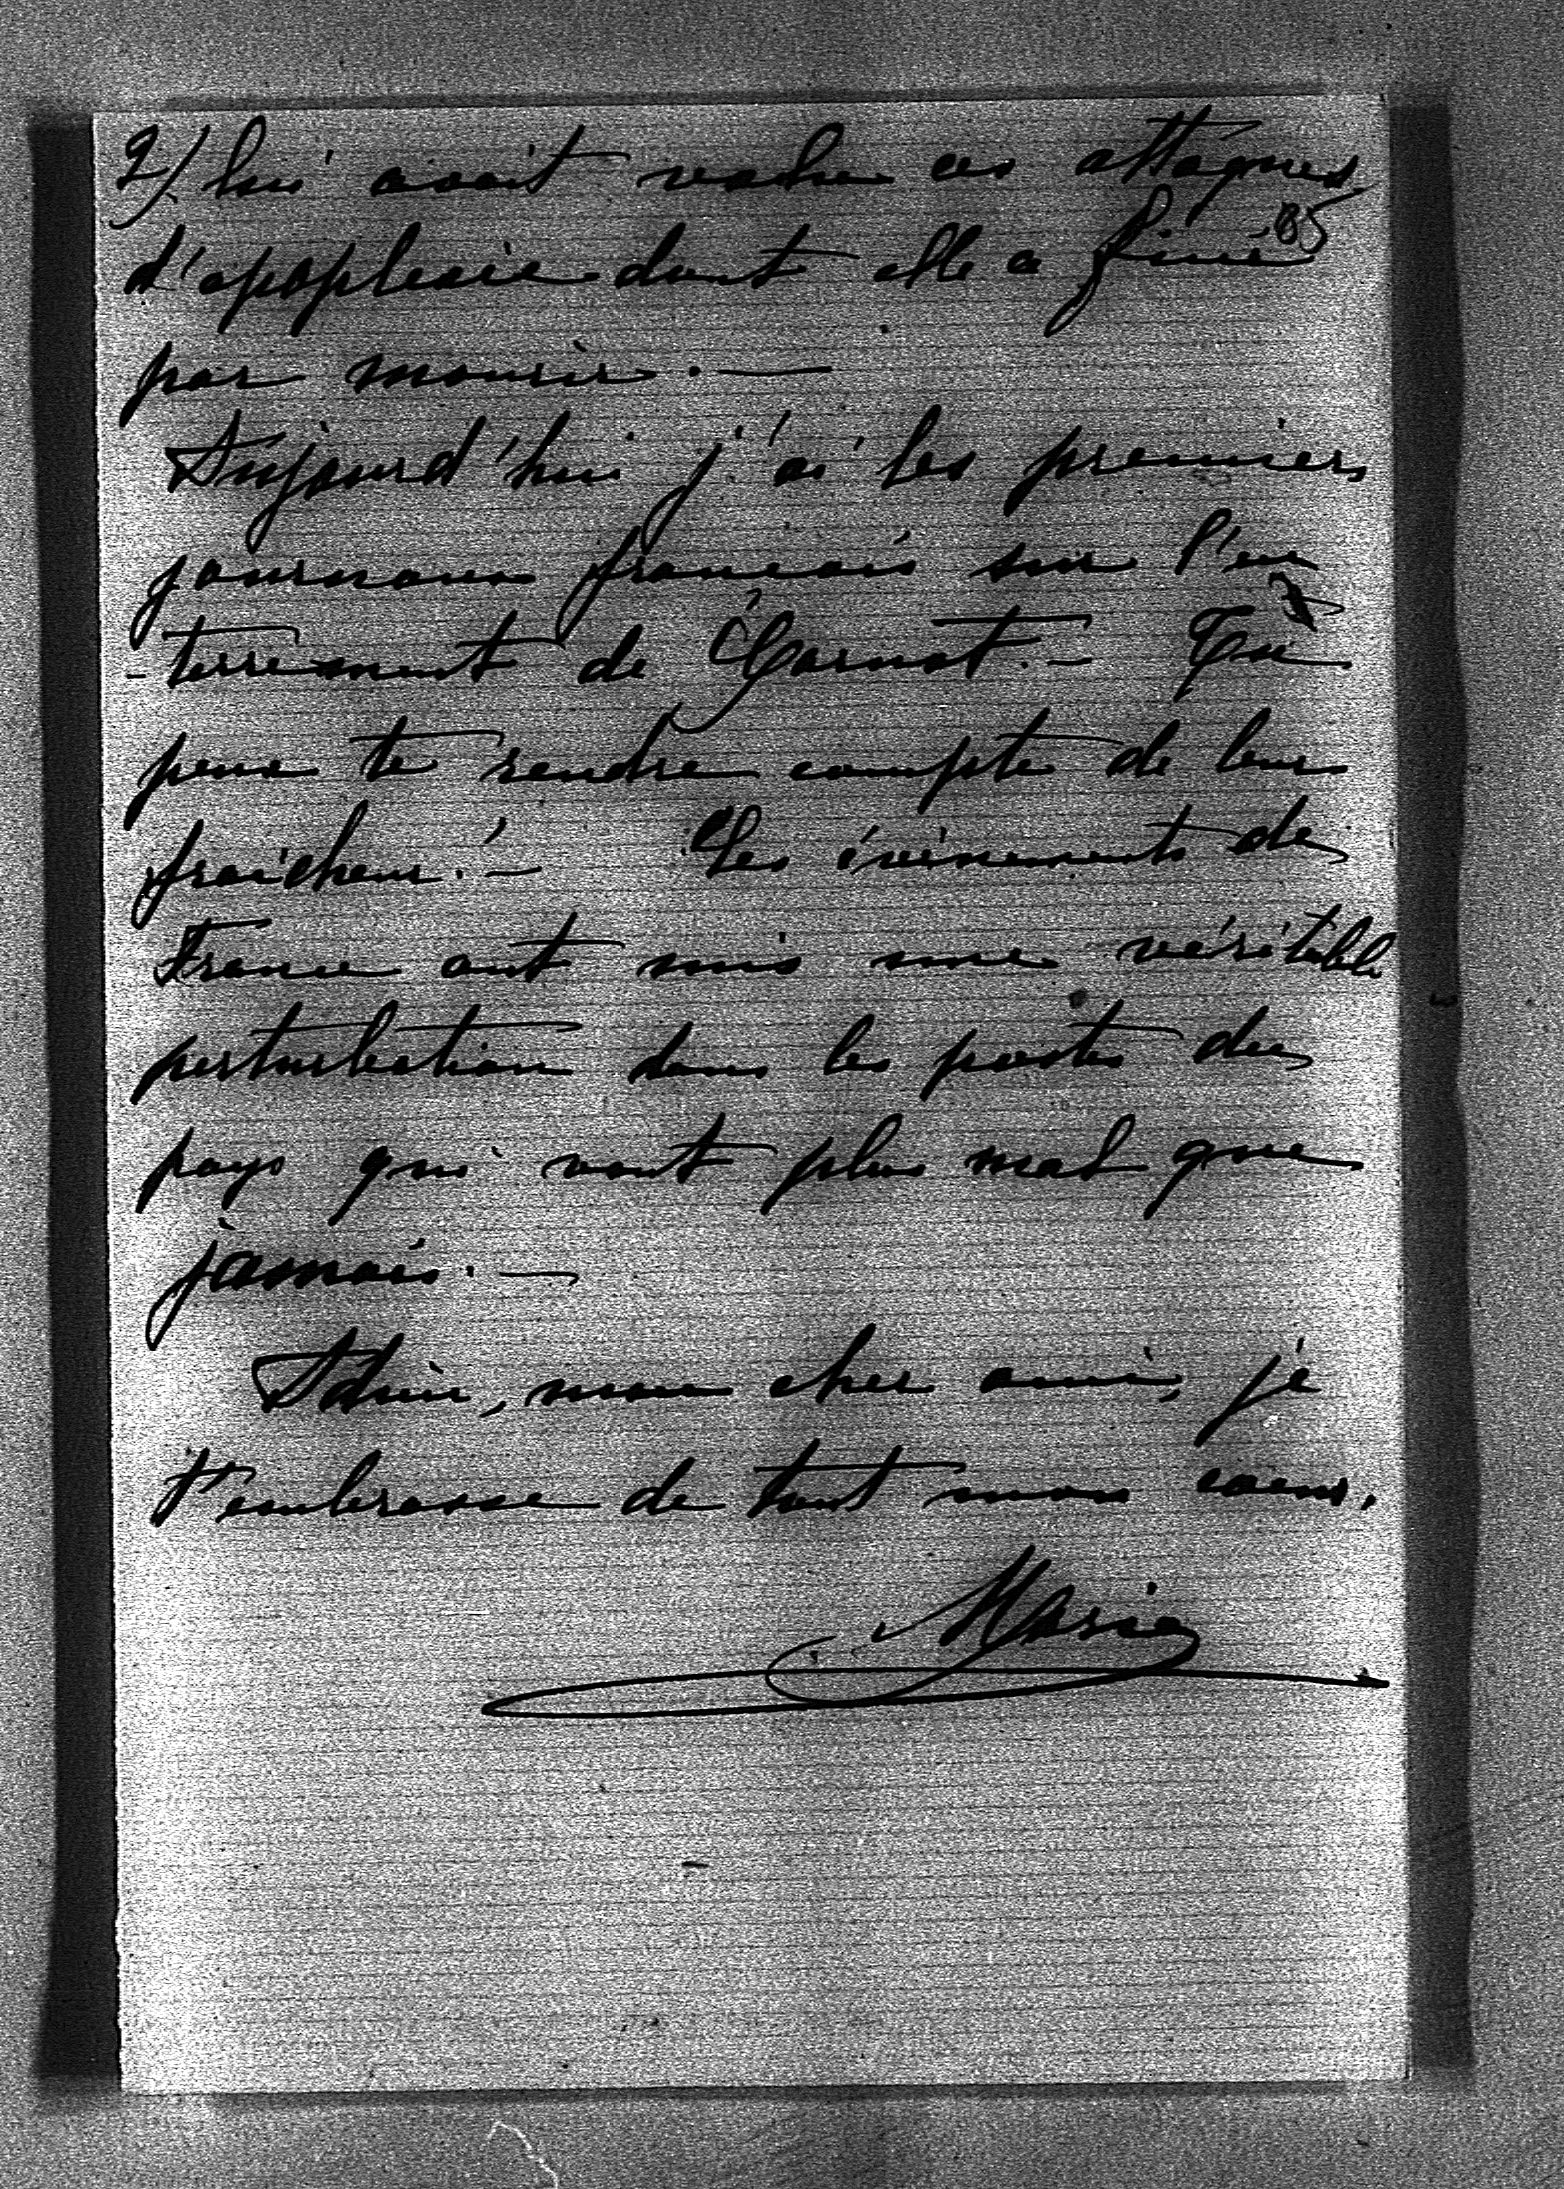 2/ lui avait valu ces attaques
85
d'apoplexie dont elle a fini
par mourir. —
Aujourd'hui j'ai les premiers
journaux français sur l'en
-terrement de Carnot. — Tu
peux te rendre compte de leur
fraîcheur! — Les événements de
France ont mis une véritable
perturbation dans les postes du
pays qui vont plus mal que
jamais. —
Adieu, mon cher ami, je
t'embrasse de tout mon coeur.
Marie